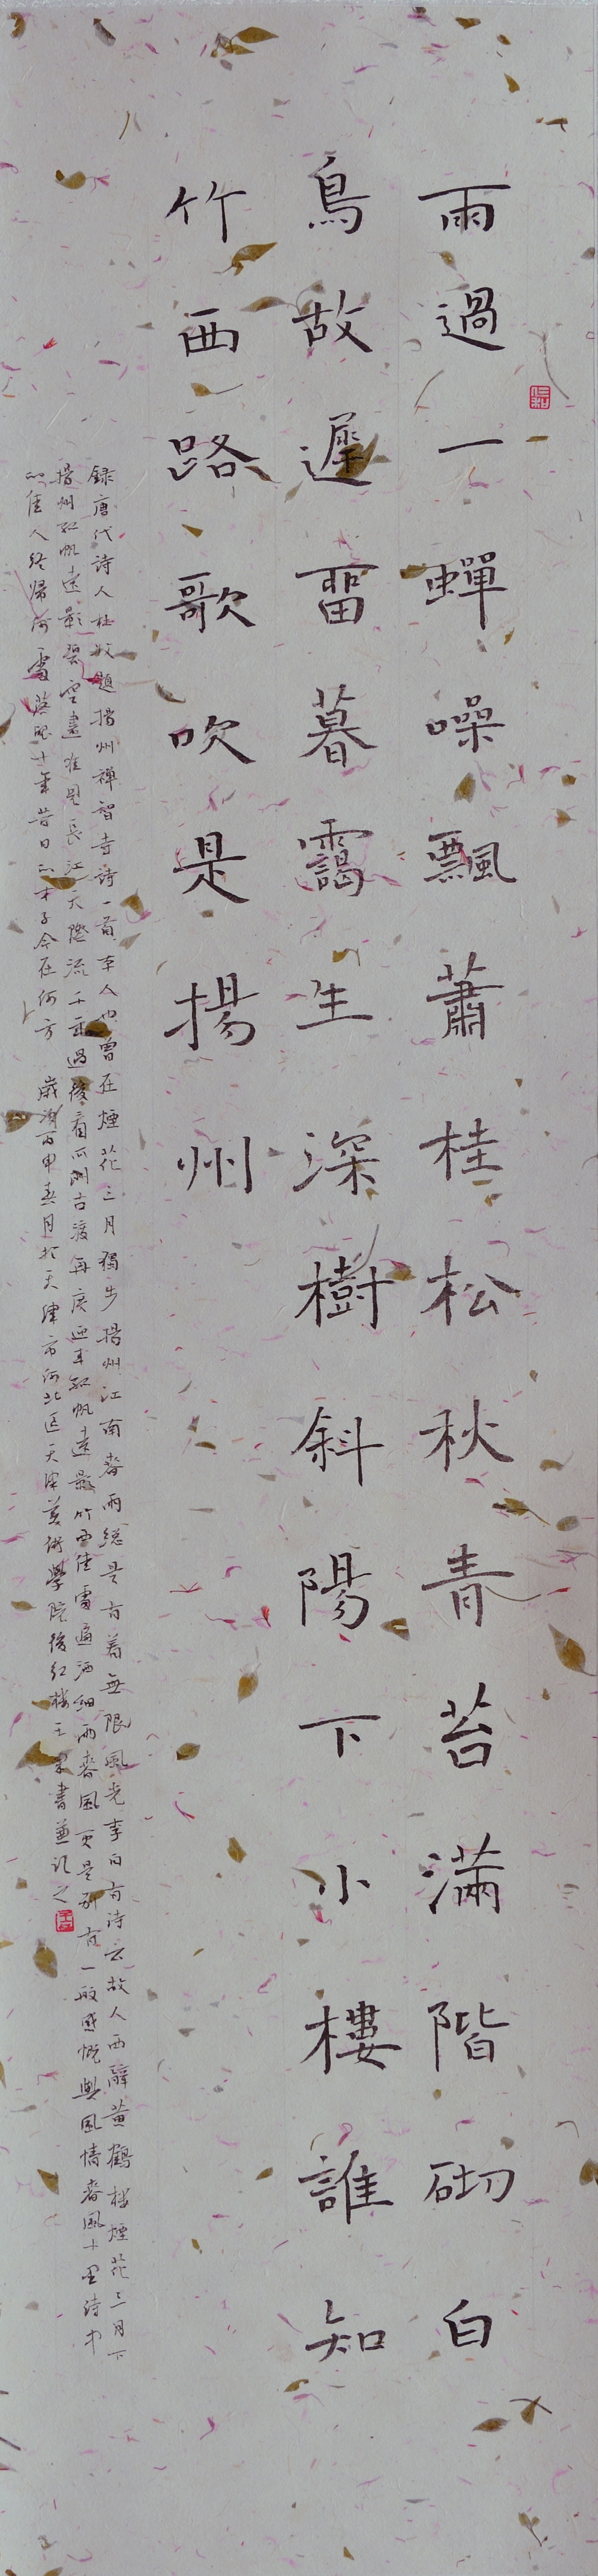 雨過一蟬噪飄蕭桂松秋青苔滿階砌白
鳥故遲留暮靄生深樹斜陽下小樓誰知
竹西路歌吹是揚州
錄唐代詩人杜牧題揚州禪智寺詩一首本人也曾在煙花三月獨步揚州江南春雨總是有着無限風光李白有詩云故人西辭黃鶴樓煙花三月下
揚州孤帆遠影碧空盡唯見長江天際流千帆過後看瓜洲古渡再度迎來孤帆遠影竹西佳處遍洒細雨春風更是別有一般感慨與風情春風十里詩中
的佳人終歸何處落魄十年昔日的才子今在何方 歲次丙申春月於天津市河北區天津美術學院後紅樓王書兼記之